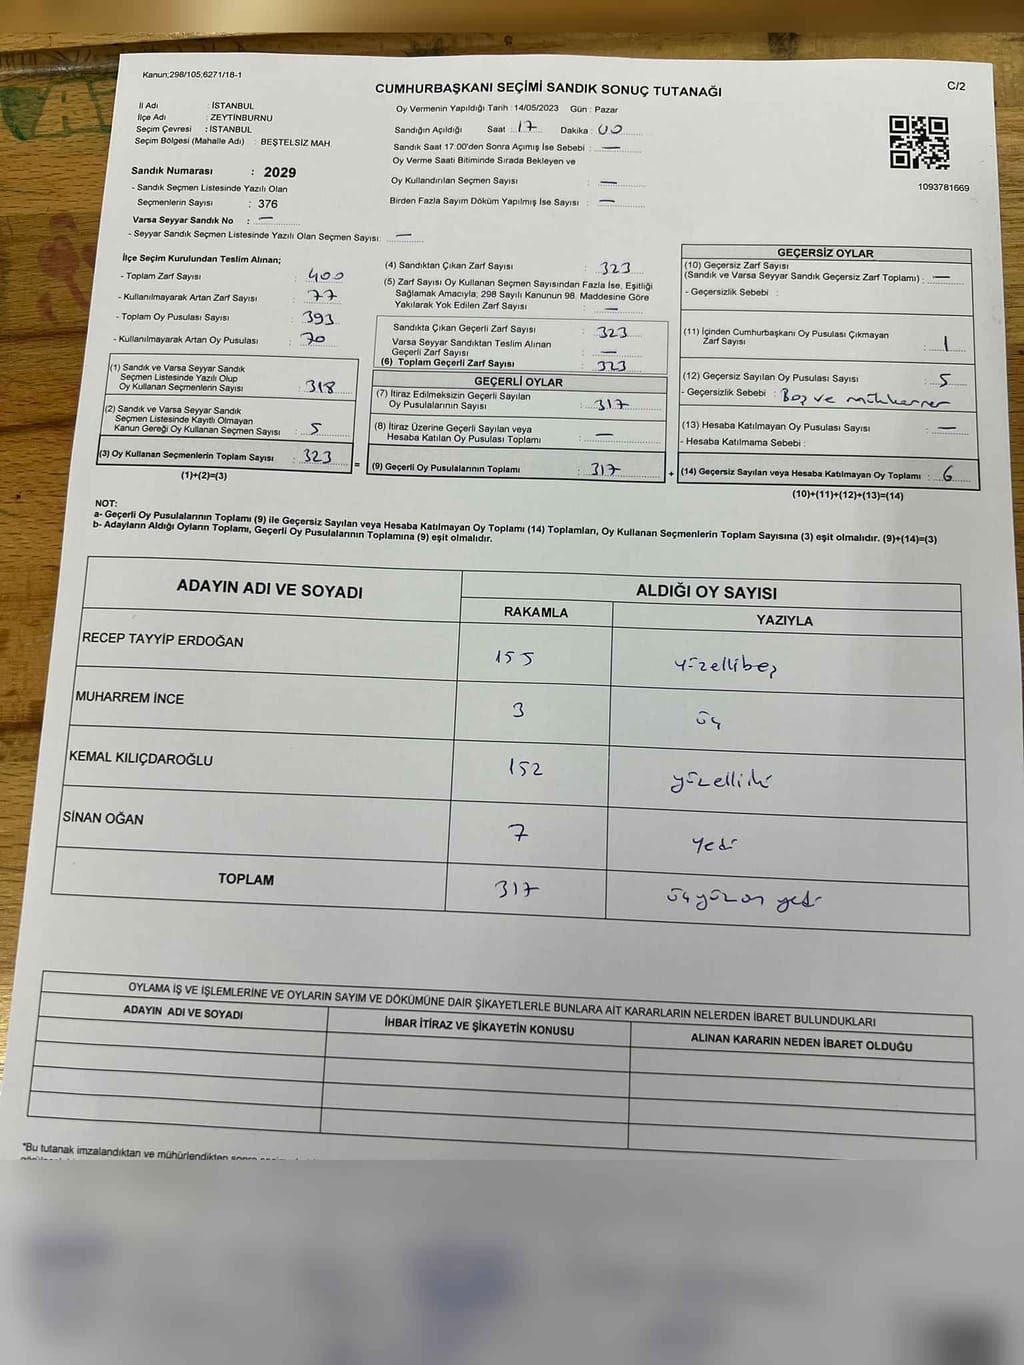 Kanun;298/105;6271/18-1
CUMHURBAŞKANI SEÇİMİ SANDIK SONUÇ TUTANAĞI
C/2
İl Adı : İSTANBUL
İlçe Adı : ZEYTİNBURNU
Seçim Çevresi : İSTANBUL
Seçim Bölgesi (Mahalle Adı) : BEŞTELSİZ MAH.
Oy Vermenin Yapıldığı Tarih : 14/05/2023 Gün : Pazar
Sandığın Açıldığı Saat : 17 Dakika : 00
Sandık Saat 17:00'den Sonra Açımış İse Sebebi : —
Oy Verme Saati Bitiminde Sırada Bekleyen ve
Oy Kullandırılan Seçmen Sayısı : —
Birden Fazla Sayım Döküm Yapılmış İse Sayısı : —
1093781669
Sandık Numarası : 2029
- Sandık Seçmen Listesinde Yazılı Olan
Seçmenlerin Sayısı : 376
Varsa Seyyar Sandık No : —
- Seyyar Sandık Seçmen Listesinde Yazılı Olan Seçmen Sayısı: —
İlçe Seçim Kurulundan Teslim Alınan;
- Toplam Zarf Sayısı : 400
- Kullanılmayarak Artan Zarf Sayısı : 77
- Toplam Oy Pusulası Sayısı : 393
- Kullanılmayarak Artan Oy Pusulası : 70
(1) Sandık ve Varsa Seyyar Sandık
Seçmen Listesinde Yazılı Olup
Oy Kullanan Seçmenlerin Sayısı : 318
(2) Sandık ve Varsa Seyyar Sandık
Seçmen Listesinde Kayıtlı Olmayan
Kanun Gereği Oy Kullanan Seçmen Sayısı : 5
(3) Oy Kullanan Seçmenlerin Toplam Sayısı : 323
(1)+(2)=(3)
(4) Sandıktan Çıkan Zarf Sayısı : 323
(5) Zarf Sayısı Oy Kullanan Seçmen Sayısından Fazla İse, Eşitliği
Sağlamak Amacıyla, 298 Sayılı Kanunun 98. Maddesine Göre
Yakılarak Yok Edilen Zarf Sayısı : —
Sandıkta Çıkan Geçerli Zarf Sayısı : 323
Varsa Seyyar Sandıktan Teslim Alınan
Geçerli Zarf Sayısı : —
(6) Toplam Geçerli Zarf Sayısı : 323
GEÇERLİ OYLAR
(7) İtiraz Edilmeksizin Geçerli Sayılan
Oy Pusulalarının Sayısı : 317
(8) İtiraz Üzerine Geçerli Sayılan veya
Hesaba Katılan Oy Pusulası Toplamı : —
= (9) Geçerli Oy Pusulalarının Toplamı : 317
GEÇERSİZ OYLAR
(10) Geçersiz Zarf Sayısı
(Sandık ve Varsa Seyyar Sandık Geçersiz Zarf Toplamı) : —
- Geçersizlik Sebebi :
(11) İçinden Cumhurbaşkanı Oy Pusulası Çıkmayan
Zarf Sayısı : 1
(12) Geçersiz Sayılan Oy Pusulası Sayısı : 5
- Geçersizlik Sebebi : Boş ve mükerrer
(13) Hesaba Katılmayan Oy Pusulası Sayısı : —
- Hesaba Katılmama Sebebi :
+ (14) Geçersiz Sayılan veya Hesaba Katılmayan Oy Toplamı : 6
(10)+(11)+(12)+(13)=(14)
NOT:
a- Geçerli Oy Pusulalarının Toplamı (9) ile Geçersiz Sayılan veya Hesaba Katılmayan Oy Toplamı (14) Toplamları, Oy Kullanan Seçmenlerin Toplam Sayısına (3) eşit olmalıdır. (9)+(14)=(3)
b- Adayların Aldığı Oyların Toplamı, Geçerli Oy Pusulalarının Toplamına (9) eşit olmalıdır.
ADAYIN ADI VE SOYADI
ALDIĞI OY SAYISI
RAKAMLA YAZIYLA
RECEP TAYYİP ERDOĞAN 155 yüzellibeş
MUHARREM İNCE 3 üç
KEMAL KILIÇDAROĞLU 152 yüzelliiki
SİNAN OĞAN 7 yedi
TOPLAM 317 üçyüzon yedi
OYLAMA İŞ VE İŞLEMLERİNE VE OYLARIN SAYIM VE DÖKÜMÜNE DAİR ŞİKAYETLERLE BUNLARA AİT KARARLARIN NELERDEN İBARET BULUNDUKLARI
ADAYIN ADI VE SOYADI İHBAR İTİRAZ VE ŞİKAYETİN KONUSU ALINAN KARARIN NEDEN İBARET OLDUĞU
*Bu tutanak imzalandıktan ve mühürlendikten sonra